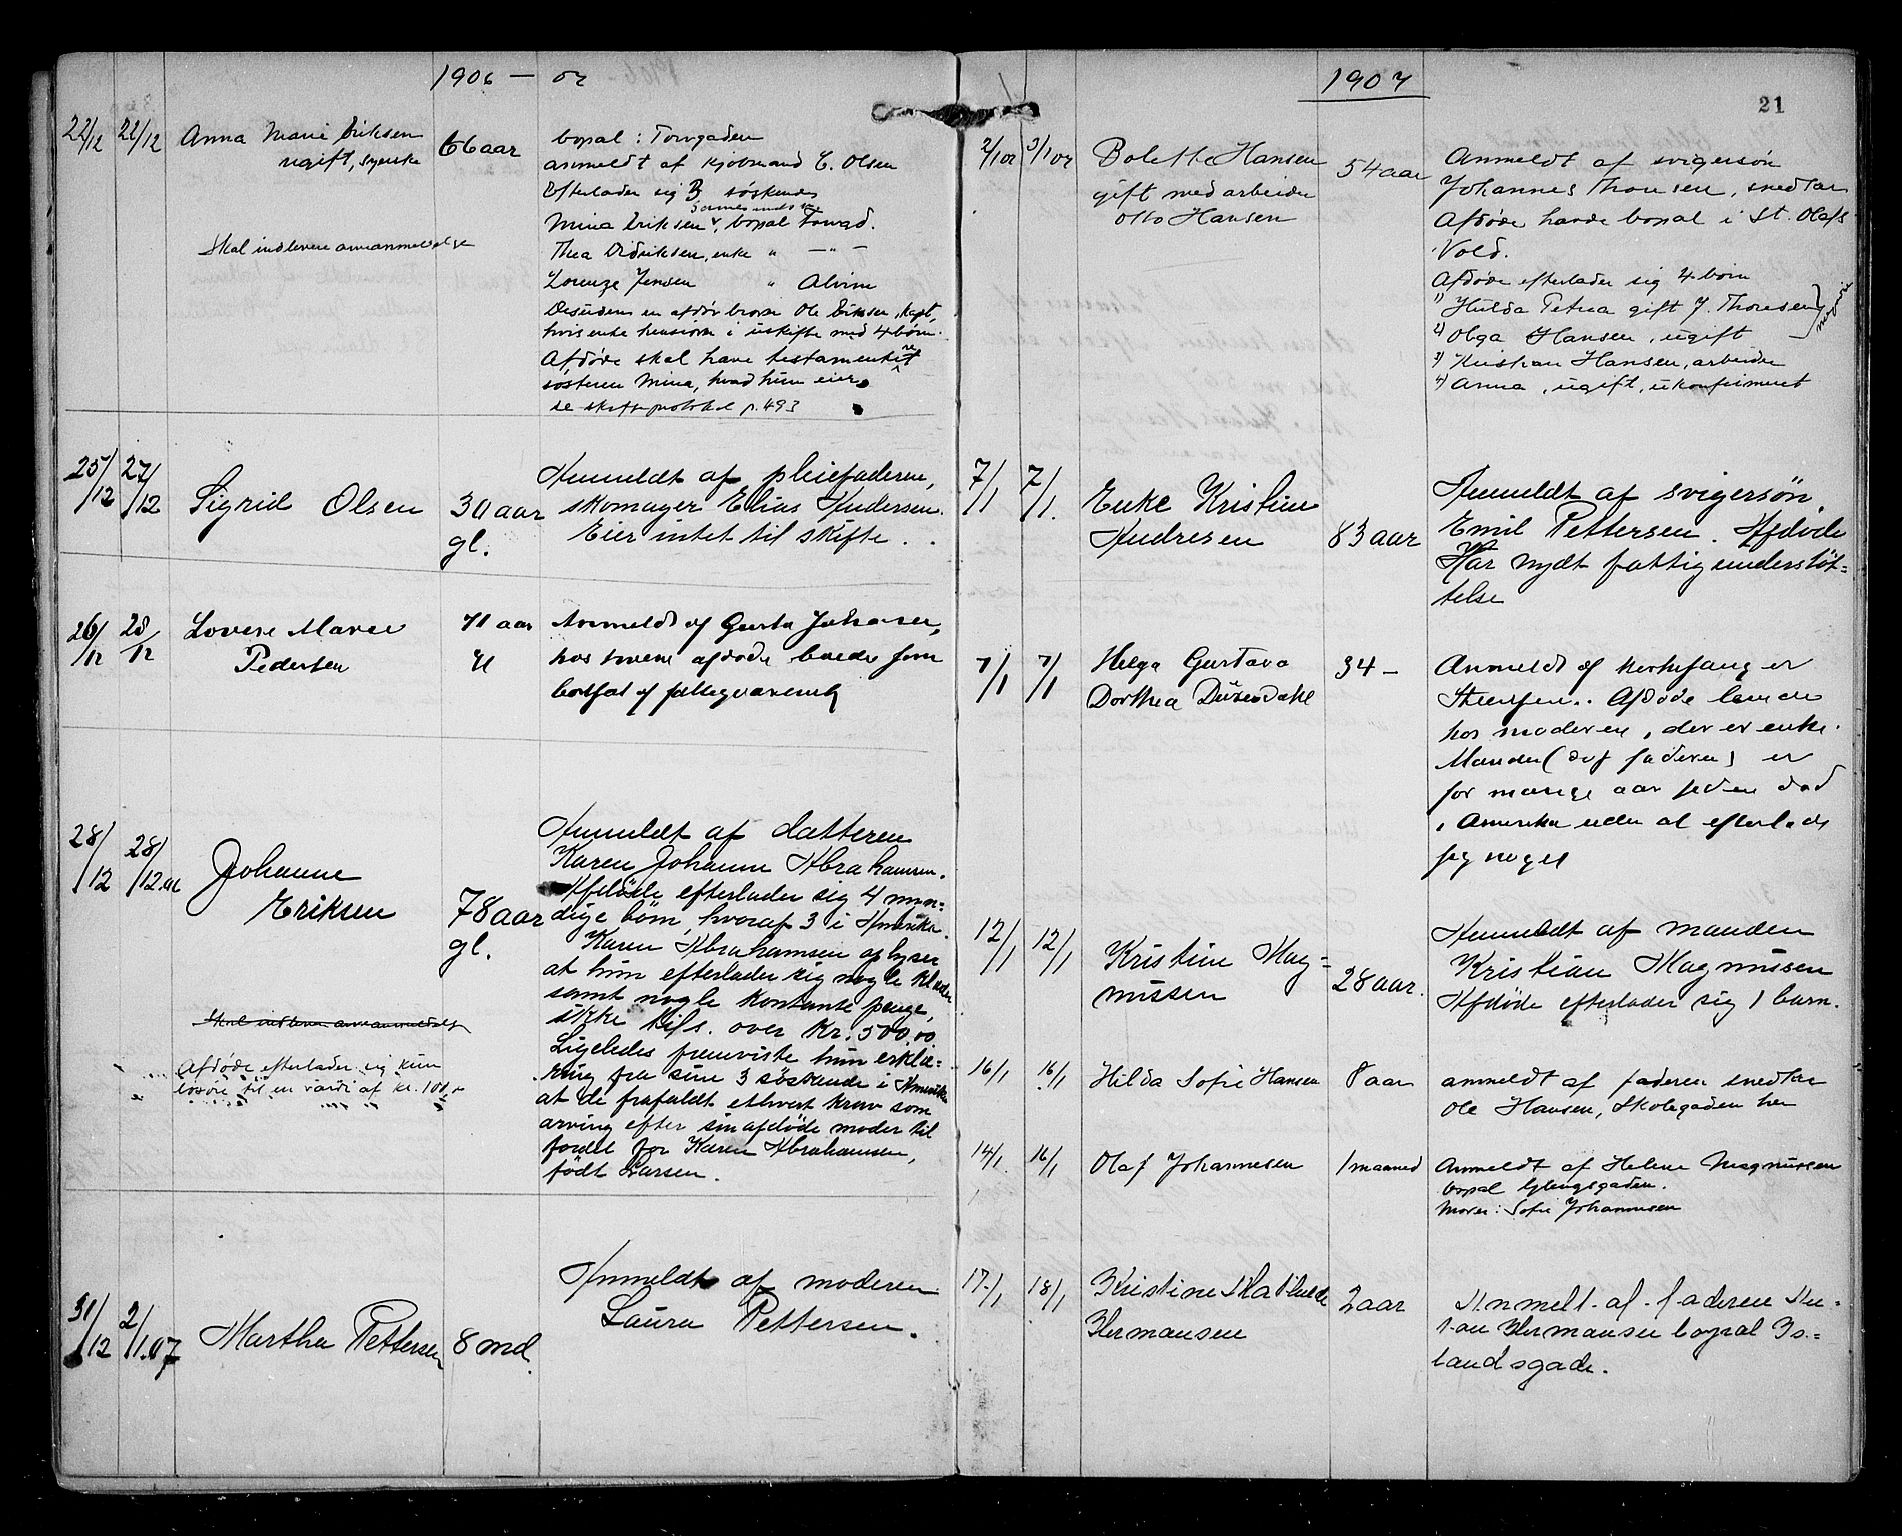 1906 — 07
22/12 22/12 Anna Marie Eriksen 66 aar bopal: Torvgaden
ugift, syerske anmeldt af kjøbmand C. Olsen
Efterlader sig 3 søskende
Mina Eriksen, bopal Torvgd.
Skal indlevere arveanmeldelse
Thea Didriksen, enke " — " —
Lorenze Jensen " Alvim
Desuden en afdød broer Ole Eriksen, Kapt,
hvis enke hensidder i uskifte med 4 børn.
Afdøde skal have testamenteret
søsteren Mina, hvad hun eier.
se skifteprotokol p. 493
25/12 27/12 Sigrid Olsen 30 aar gl.
Anmeldt af pleiefaderen,
skomager Elias Andersen.
Eier intet til skifte.
26/12 28/12 Lovise Marie Pedersen 71 aar gl
Anmeldt af Gusta Johansen,
hos hvem afdøde boede som
bortsat af fattigvæsenet
28/12 28/12.06 Johanne Eriksen 78 aar gl.
Anmeldt af datteren
Karen Johanne Abrahamsen.
Afdøde efterlader sig 4 myn-
dige børn, hvoraf 3 i Amerika.
Karen Abrahamsen oplyser
at hun efterlader sig nogle klæder
samt nogle kontante penge,
ikke tils. over kr. 500.00.
Ligeledes fremviste hun erklæ-
ring fra sine 3 søskende i Amerika
at de frafaldt ethvert krav som
arving efter sin afdøde moder til
fordel for Karen Abrahamsen,
født Larsen.
Skal indlevere arveanmeldelse
Afdøde efterlader sig kun
løsøre til en værdi af kr. 100,-
31/12 2/1.07 Martha Pettersen 8 md.
Anmeldt af moderen
Laura Pettersen.
1907
21
2/1 07 3/1 07 Bolette Hansen 54 aar
gift med arbeider
Otto Hansen
Anmeldt af svigersøn
Johannes Thonsen, snedker
Afdøde havde bopal i St. Olafs
Vold.
Afdøde efterlader sig 4 børn
1) Hulda Petrea gift J. Thonsen } myndige
2) Olga Hansen, ugift
3) Kristian Hansen, arbeider
4) Anna, ugift, ukonfirmeret
7/1 7/1. Enke Kristine
Andresen 83 aar
Anmeldt af svigersøn,
Emil Pettersen. Afdøde
Har nydt fattigunderstøt-
telse
7/1 7/1 Helga Gustava 34 —
Dorthea
Anmeldt af kirkesanger
Steensen. Afdøde
hos moderen, der er enke.
Manden (dvs faderen) er
for mange aar siden død
i Amerika uden at efterlade
sig noget
12/1 12/1 Kristine Mag-
nussen 28 aar.
Anmeldt af manden
Kristian Magnussen
Afdøde efterlader sig 1 barn.
16/1 16/1 Hilda Sofie Hansen 8 aar anmeldt af faderen snedker
Ole Hansen, Skolegaden her
14/1. 16/1 Olaf Johannesen 1 maaned Anmeldt af Helene Magnussen
bopal Glengsgaden.
Moder: Sofie Johannesen
17/1 18/1 Kristine Mathilde
Hermansen 2 aar
Anmelt af faderen An-
ton Hermansen bopal Is-
landsgade.